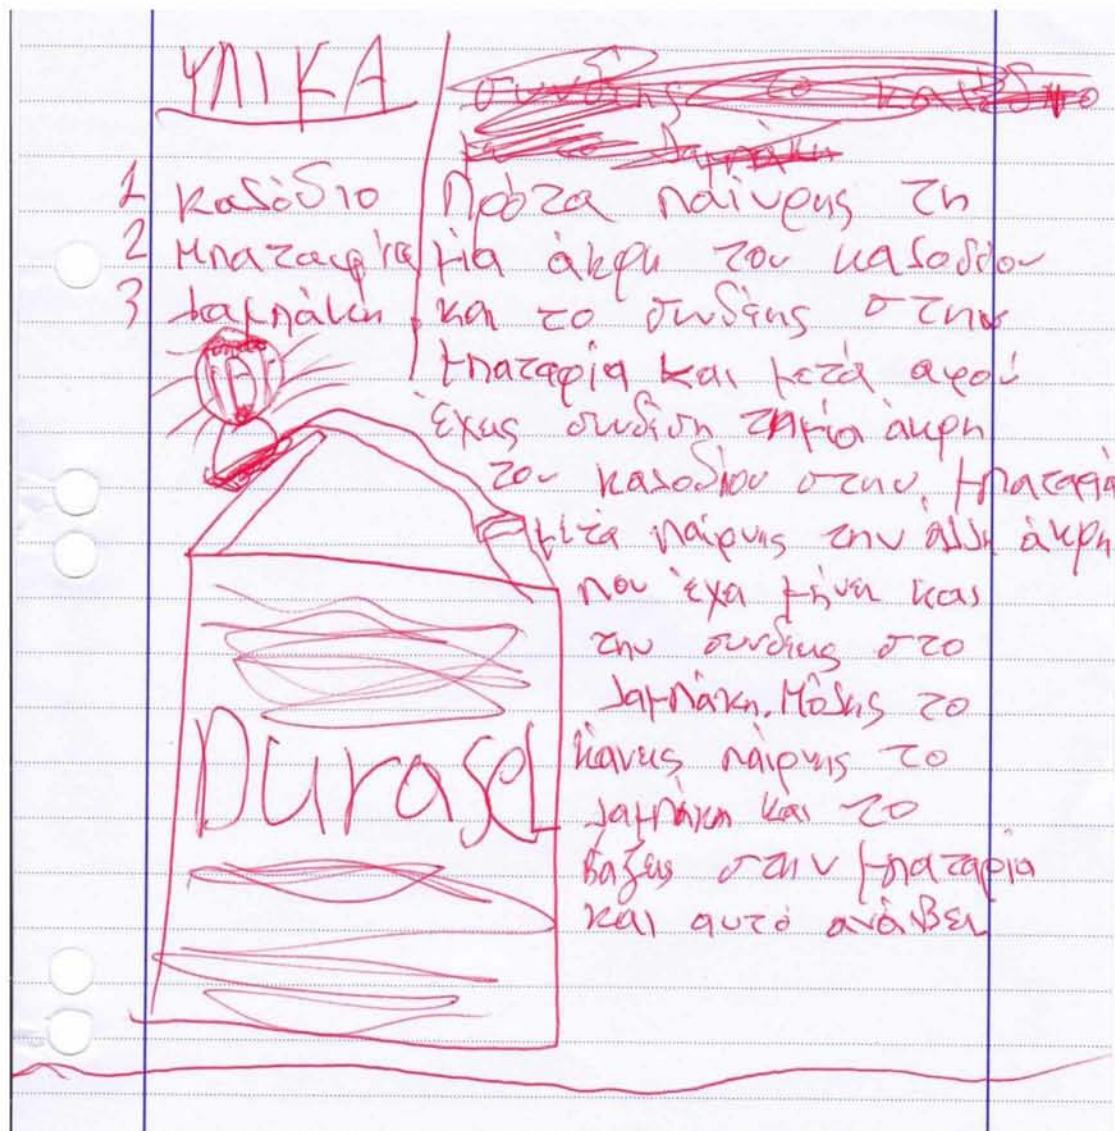 ΥΛΙΚΑ
1 καλόδιο
2 Μπαταρία
3 λαμπάκη
Πρότα παίνρης τη
μία άκρη του καλοδίου
και το συνδέης στην
μπαταρία και μετά αφού
έχεις συνδέση τη μία άκρη
του καλοδίου στην μπαταρία
μετά παίρνης την άλλη άκρη
που έχει μήνει και
την συνδέεις στο
λαμπάκη. Μόλης το
κάνεις παίρνης το
λαμπάκη και το
βαζεις στην μπαταρία
και αυτό ανάβει
Durasel